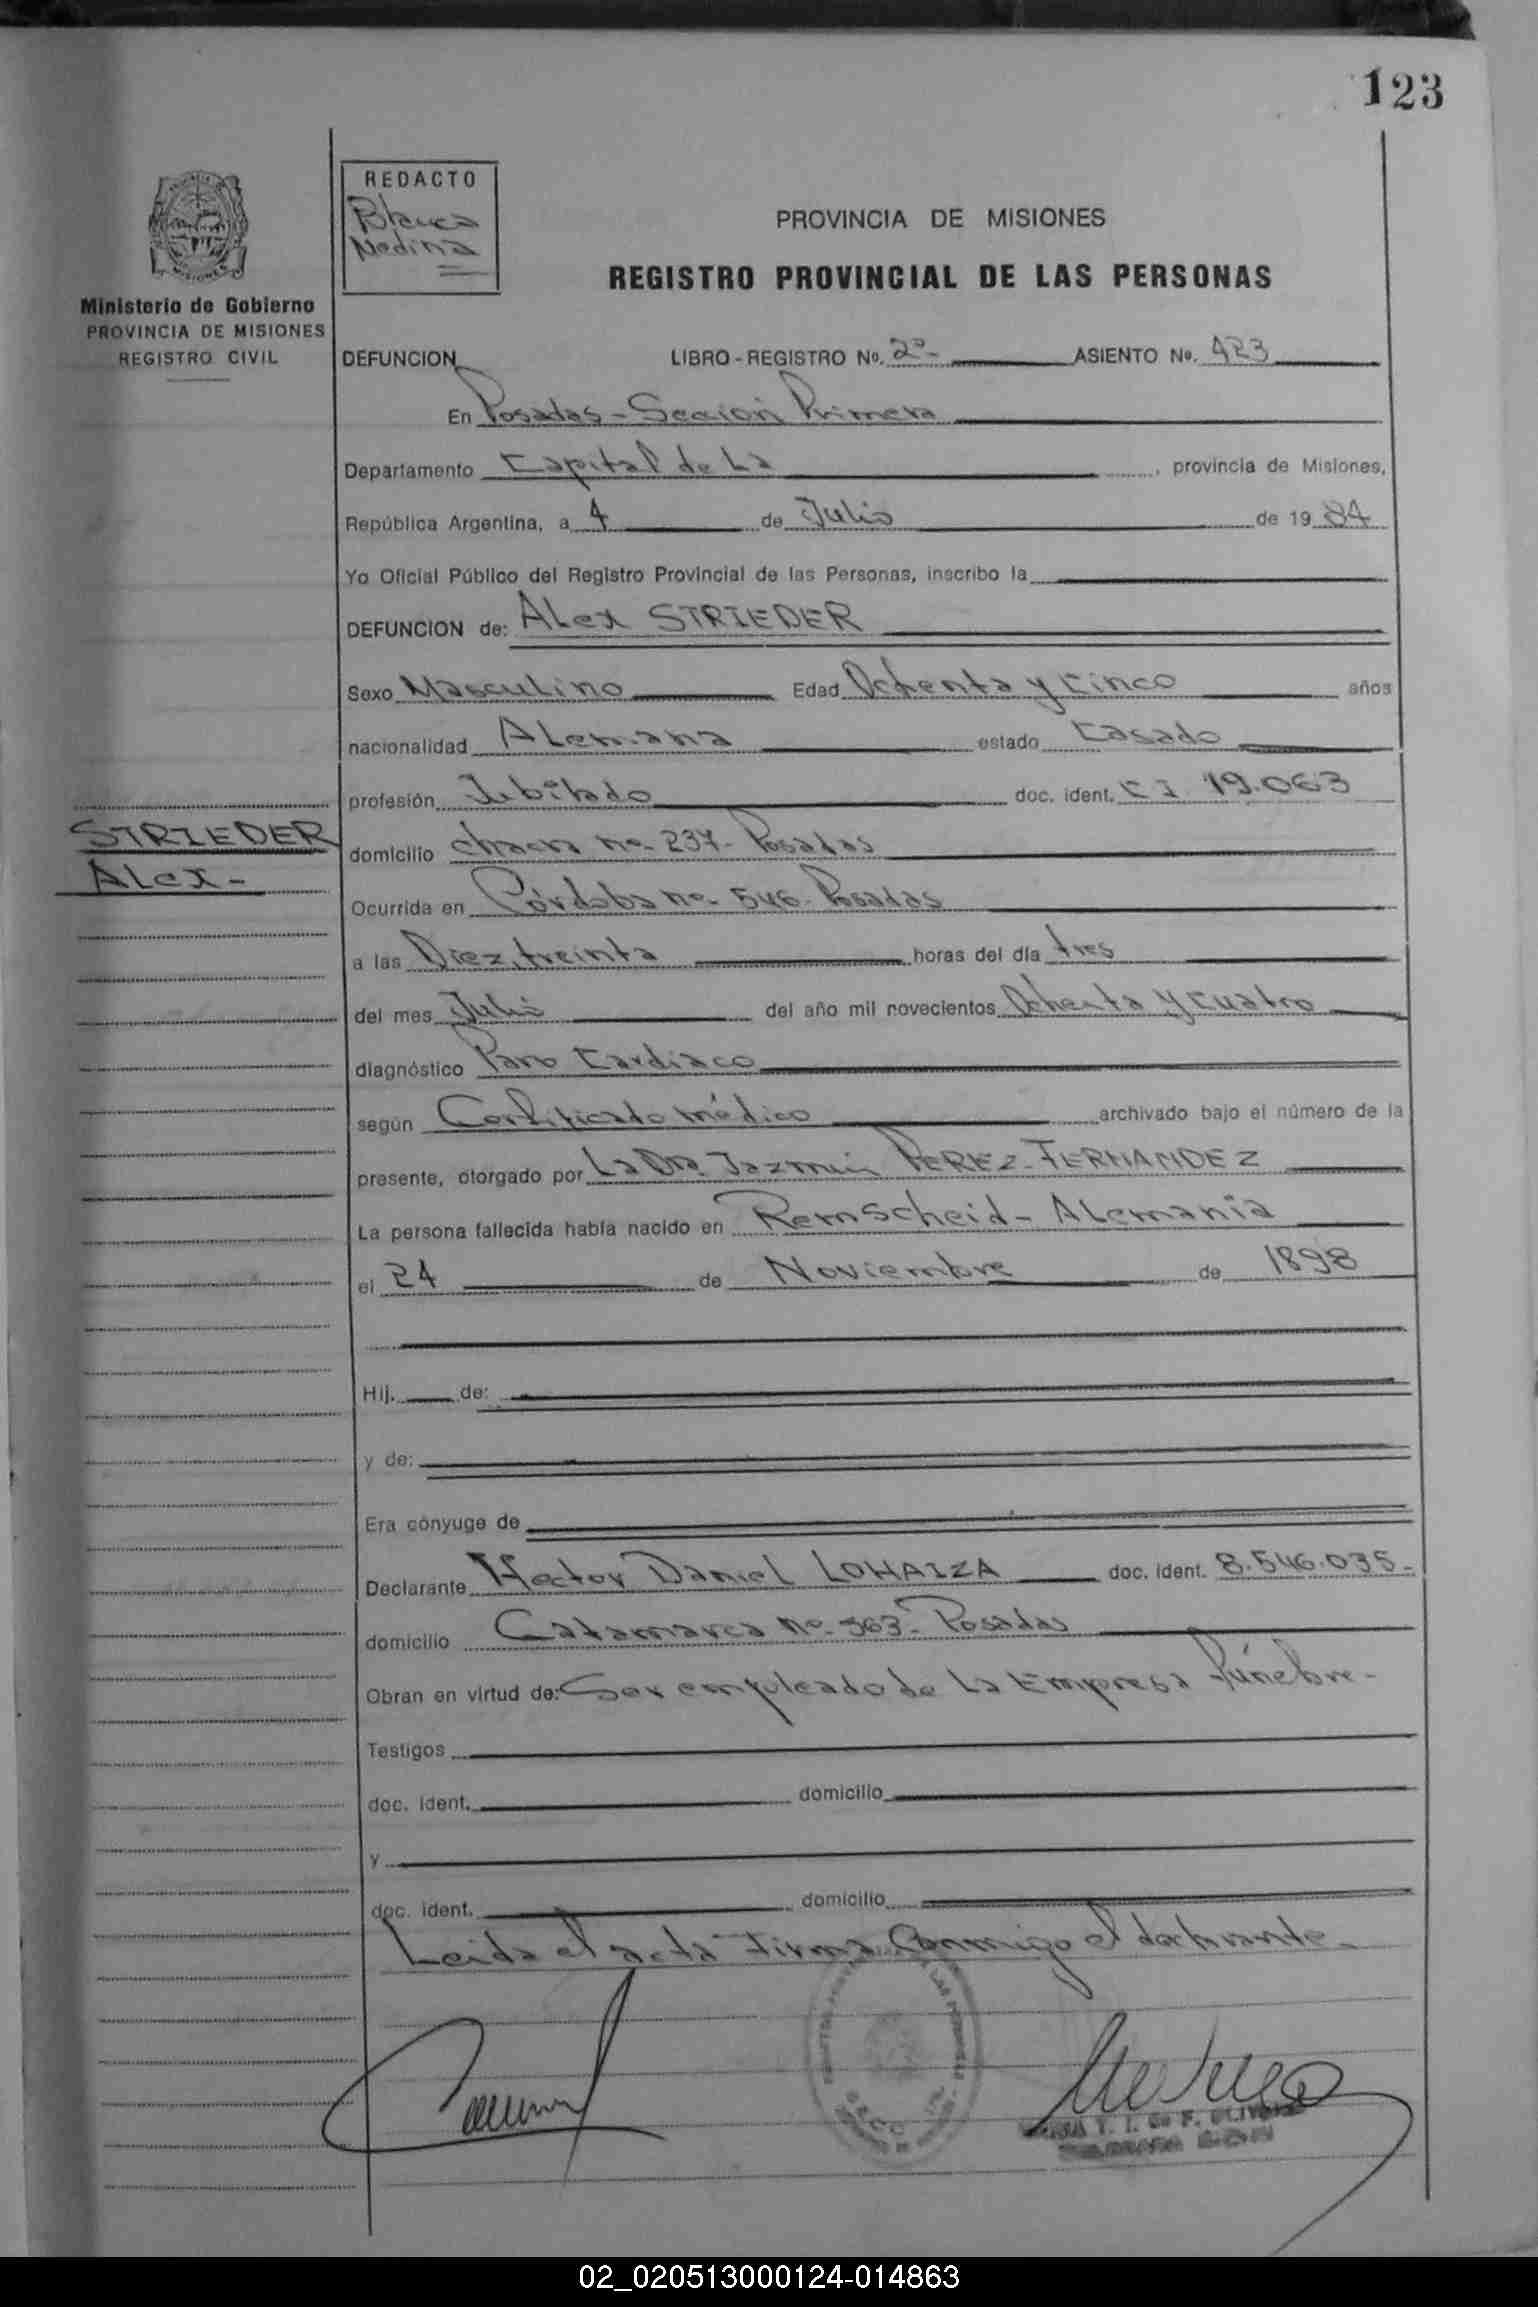 123
REDACTO
Blanca
Medina
PROVINCIA DE MISIONES
REGISTRO PROVINCIAL DE LAS PERSONAS
Ministerio de Gobierno
PROVINCIA DE MISIONES
REGISTRO CIVIL
DEFUNCION LIBRO - REGISTRO No. 2º- ASIENTO No. 423
En Posadas - Sección Primera
Departamento Capital de La , provincia de Misiones,
República Argentina, a 4 de Julio de 19 84
Yo Oficial Público del Registro Provincial de las Personas, inscribo la
DEFUNCION de: Alex STRIEDER
Sexo Masculino Edad Ochenta y Cinco años
nacionalidad Alemana estado Casado
profesión Jubilado doc. ident. C I 19.063
STRIEDER
Alex-
domicilio chacra nº- 237- Posadas
Ocurrida en Córdoba nº- 546- Posadas
a las Diez, treinta horas del día tres
del mes Julio del año mil novecientos Ochenta y Cuatro
diagnóstico Paro Cardíaco
según Certificado médico archivado bajo el número de la
presente, otorgado por La Dra. Jazmin PEREZ-FERNANDEZ
La persona fallecida había nacido en Remscheid - Alemania
el 24 de Noviembre de 1898
Hij. de:
y de:
Era cónyuge de
Declarante Hector Daniel LOHAIZA doc. ident. 8.546.035-
domicilio Catamarca nº- 563- Posadas
Obran en virtud de: Ser empleado de La Empresa fúnebre-
Testigos
doc. ident. domicilio
y
doc. ident. domicilio
Leída el acta firma Conmigo el declarante-
02_020513000124-014863